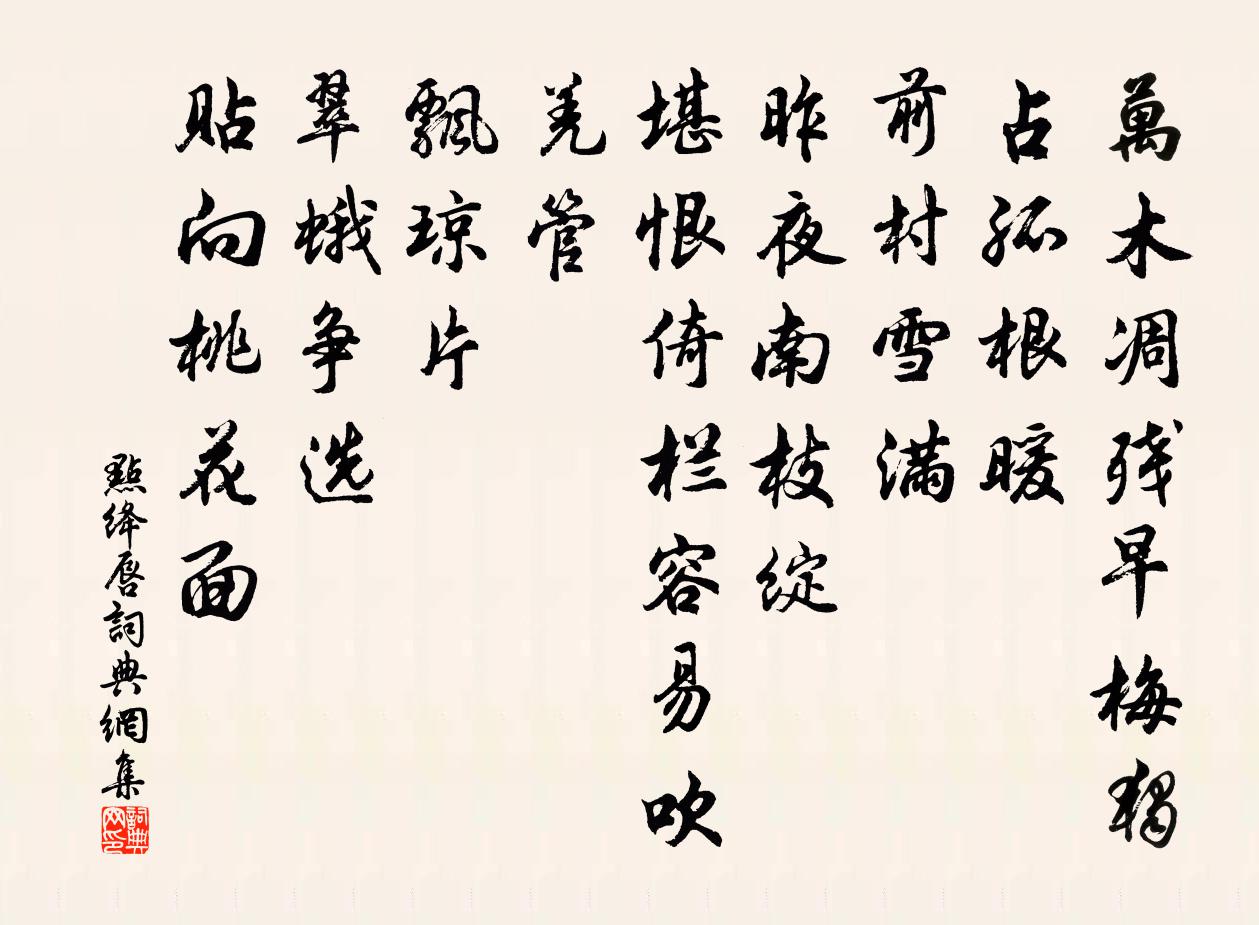 萬木凋残早梅獨
占孤根暖
前村雪满
昨夜南枝綻
堪恨倚栏容易吹
羌管
飄琼片
翠蛾争选
貼向桃花面
點绛唇詞典網集
詞典网印